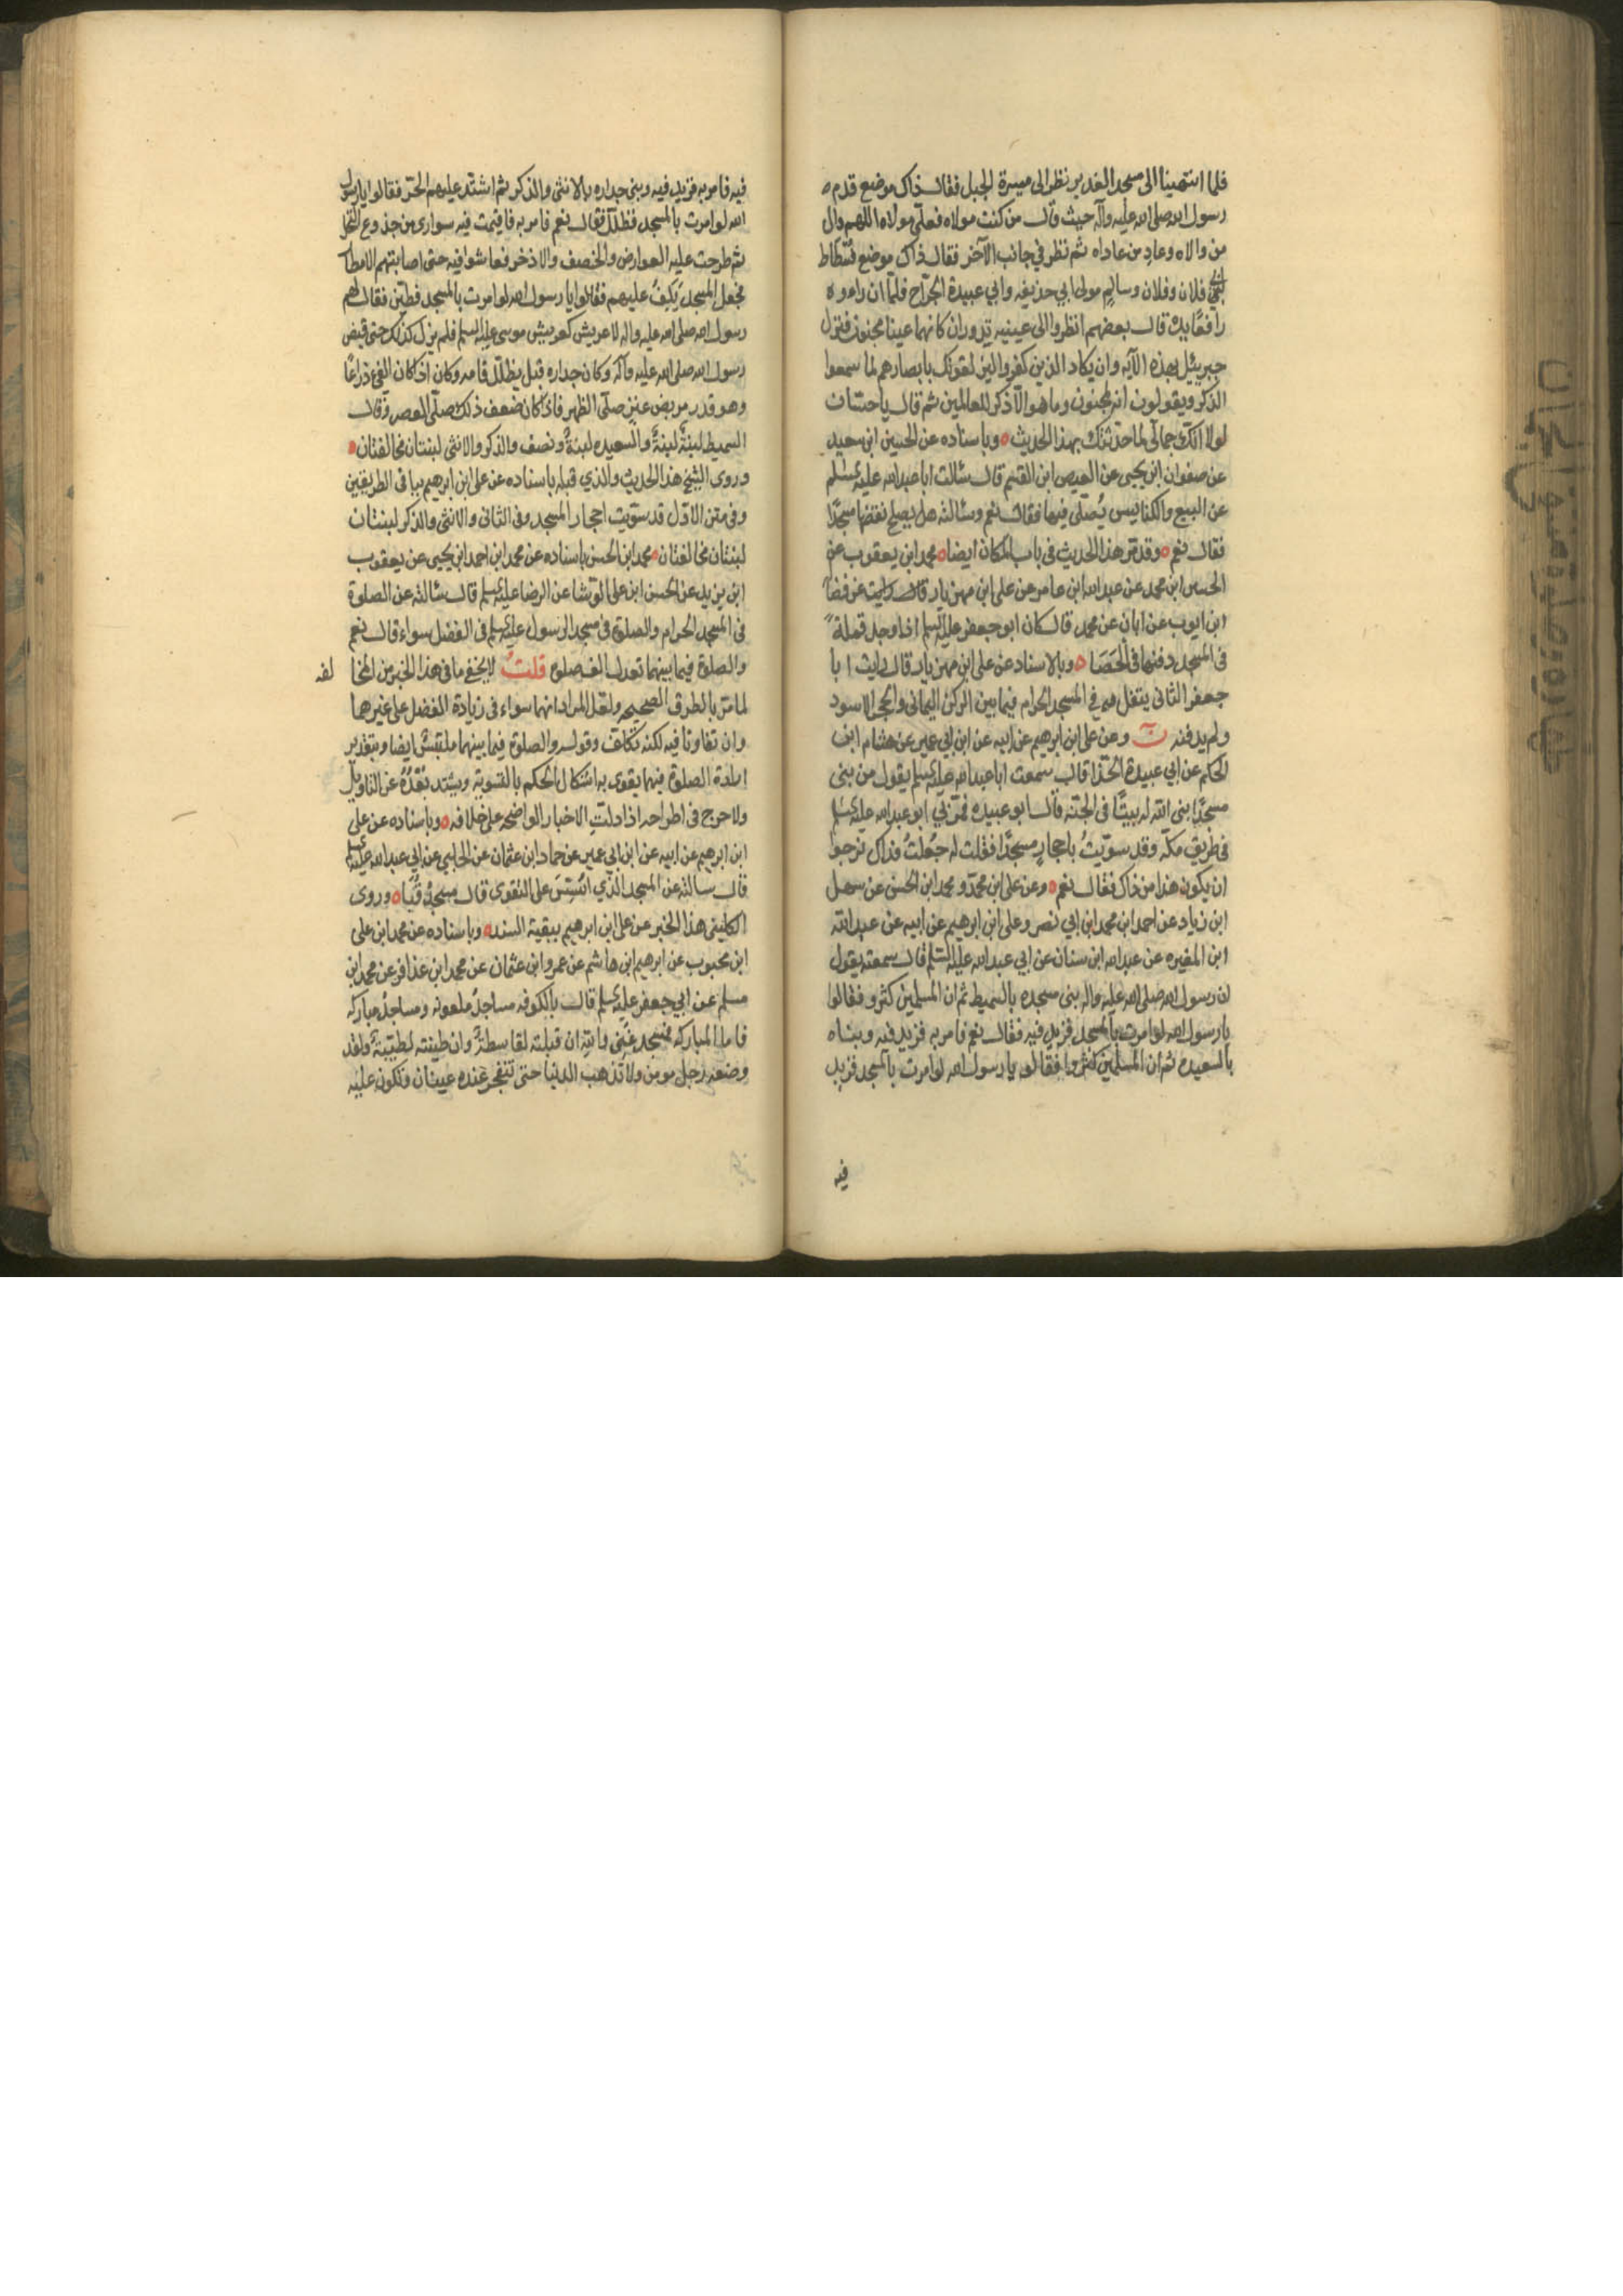 فلما انتهينا الى مسجد الغدير نظر الى ميسرة الجبل فقال ذاك موضع قدم
رسول الله صلى الله عليه وآله حيث قال من كنت مولاه فعلي مولاه اللهم وال
من والاه وعاد من عاداه ثم نظر في جانب الآخر فقال ذاك موضع فسطاط
فلان وفلان وسالم مولى ابي حذيفه وابي عبيدة الجراح فلما ان راوه
رافعًا يده قال بعضهم انظروا الى عينيه تدوران كانهما عينا مجنون فنزل
جبرئيل بهذه الآيه وان يكاد الذين كفروا ليزلقونك بابصارهم لما سمعوا
الذكر ويقولون انه لمجنون وما هو الا ذكر للعالمين ثم قال يا حسان
لولا انك جمالي لما حدثتك بهذا الحديث ٥ وباسناده عن الحسين ابن سعيد
عن صفوان ابن يحيى عن العيص ابن القسم قال سئالت ابا عبدالله عليه السلم
عن البيع والكنايس يُصلّى فيها فقال نعم وسئالته هل يصلح نقضها مسجدًا
فقال نعم ٥ وقد مر هذا الحديث في باب المكان ايضا ٥ محمد ابن يعقوب عن
الحسين ابن محمد عن عبدالله ابن عامر عن علي ابن مهزيار عن فضالة
ابن ايوب عن ابان عن محمد قال كان ابو جعفر عليه السلم اذا وجد قملة
في المسجد دفنها في الحَصَا ٥ وبالاسناد عن علي ابن مهزيار قال رايت ابا
جعفر الثاني يتفل في المسجد الحرام فيما بين الركن اليماني والحجر الاسود
ولم يدفنه وعن علي ابن ابرهيم عن ابيه عن ابن ابي عمير عن هشام ابن
الحكم عن ابي عبيدة الحذا قال سمعت ابا عبدالله عليه السلم يقول من بنى
مسجدًا بنى الله له بيتًا في الجنه قال ابو عبيده فمر بي ابو عبدالله عليه السلم
في طريق مكه وقد سويتُ باحجارٍ مسجدًا فقلت له جُعلتُ فداك نرجوا
ان يكون هذا من ذاك فقال نعم ٥ وعن علي ابن محمد و محمد ابن الحسن عن سهل
ابن زياد عن احمد ابن محمد ابن ابي نصر وعلي ابن ابرهيم عن ابيه عن عبدالله
ابن المغيره عن عبدالله ابن سنان عن ابي عبدالله عليه السلم قال سمعته يقول
ان رسول الله صلى الله عليه واله بنى مسجده بالسميط ثم ان المسلمين كثرو فقالوا
يا رسول الله لو امرت بالمسجد فزيد فيه فقال نعم فامر به فزيد فيه وبناه
بالسعيده ثم ان المسلمين كثروا فقالو يا رسول الله لو امرت بالمسجد فزيد
فيه
فيه فامر به فزيد فيه وبنى جداره بالانثى والذكر ثم اشتد عليهم الحر فقالوا يا رسول
الله لو امرت بالمسجد فظلل فقال نعم فامر به فاقيمت فيه سوارى من جذوع النخل
ثم طرحت عليه العوارض والخصف والاذخر فعاشوا فيه حتى اصابتهم الامطار
فجعل المسجد يَكِفُ عليهم فقالوا يا رسول الله لو امرت بالمسجد فطين فقال لهم
رسول الله صلى الله عليه واله لا عريش كعريش موسى عليه السلم فلم يزل كذلك حتى قبض
رسول الله صلى الله عليه وآله وكان جداره قبل يظلل قامه وكان اذا كان الفئ ذراعًا
وهو قدر مربض عنز صلّى الظهر فاذا كان ضعف ذلك صلّى العصر وقال
السميط لبنةً لبنةً والسعيده لبنةً ونصف والذكر والانثى لبنتان مخالفتان ٥
وروى الشيخ هذا الحديث والذي قبله باسناده عن علي ابن ابرهيم بباقي الطريقين
وفي متن الاول قد سويت احجار المسجد وفي الثاني والانثى والذكر لبنتان
لبنتان مخالفتان ٥ محمد ابن الحسن باسناده عن محمد ابن احمد ابن يحيى عن يعقوب
ابن يزيد عن الحسن ابن علي الوشا عن الرضا عليه السلم قال سئالته عن الصلوة
في المسجد الحرام والصلوة في مسجد الرسول عليه السلم في الفضل سواء قال نعم
والصلوة فيما بينهما تعدل الف صلوة قلتُ لا يخفى ما في هذا الخبر من المخا لفه
لما مر بالطرق الصحيحه ولعل المراد انهما سواء في زيادة الفضل على غيرهما
وان تفاوتا فيه لكنه تكلف وقوله والصلوة فيما بينهما ملتبس ايضا وبتقدير
ارادة الصلوة فيهما يقوى به اشكال الحكم بالتسوية ويشتد بُعْدُهُ عن التاويل
ولا حرج في اطراحه اذا دلت الاخبار الواضحه على خلافه ٥ وباسناده عن علي
ابن ابرهيم عن ابيه عن ابن ابي عمير عن حماد ابن عثمان عن الحلبي عن ابي عبدالله عليه السلم
قال سالته عن المسجد الذي اُسّسَ على التقوى قال مسجدُ قُبَا ٥ وروى
الكليني هذا الخبر عن علي ابن ابرهيم ببقية السند ٥ وباسناده عن محمد ابن علي
ابن محبوب عن ابرهيم ابن هاشم عن عمرو ابن عثمان عن محمد ابن عذافر عن محمد ابن
مسلم عن ابي جعفر عليه السلم قال بالكوفه مساجدُ ملعونه ومساجدُ مباركه
فاما المباركه فمسجد غَنِي والله ان قبلته لقاسطةٌ وان طينته لطيّبةٌ ولقد
وضعه رجل مومن ولا تذهب الدنيا حتى تنفجر عنده عينان وتكون عليه